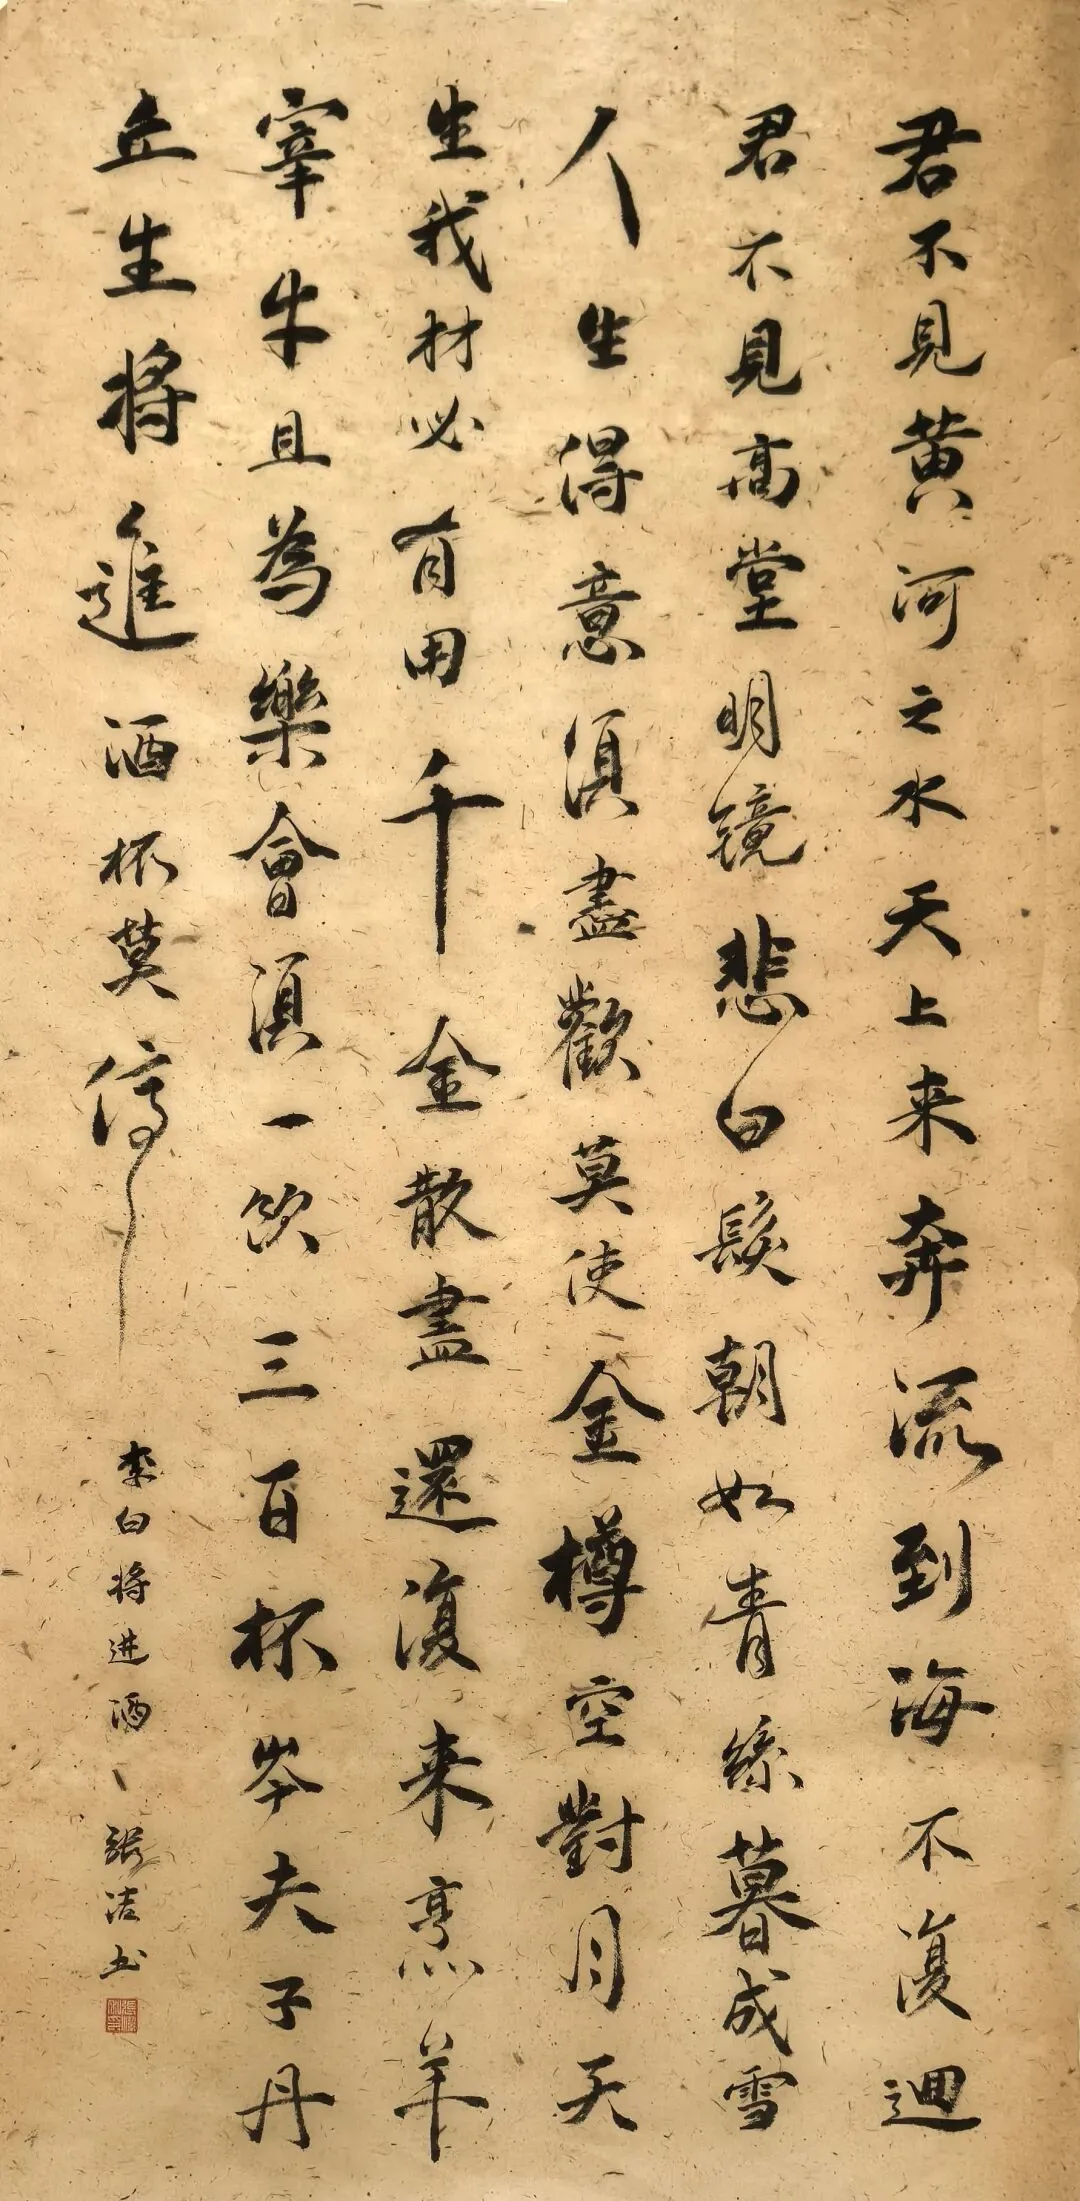 君不見黄河之水天上来奔流到海不復迴
君不見高堂明镜悲白髮朝如青絲暮成雪
人生得意須盡歡莫使金樽空對月天
生我材必有用千金散盡還復来烹羊
宰牛且為樂會須一飲三百杯岑夫子丹
丘生将進酒杯莫停
李白将进酒、張洁书